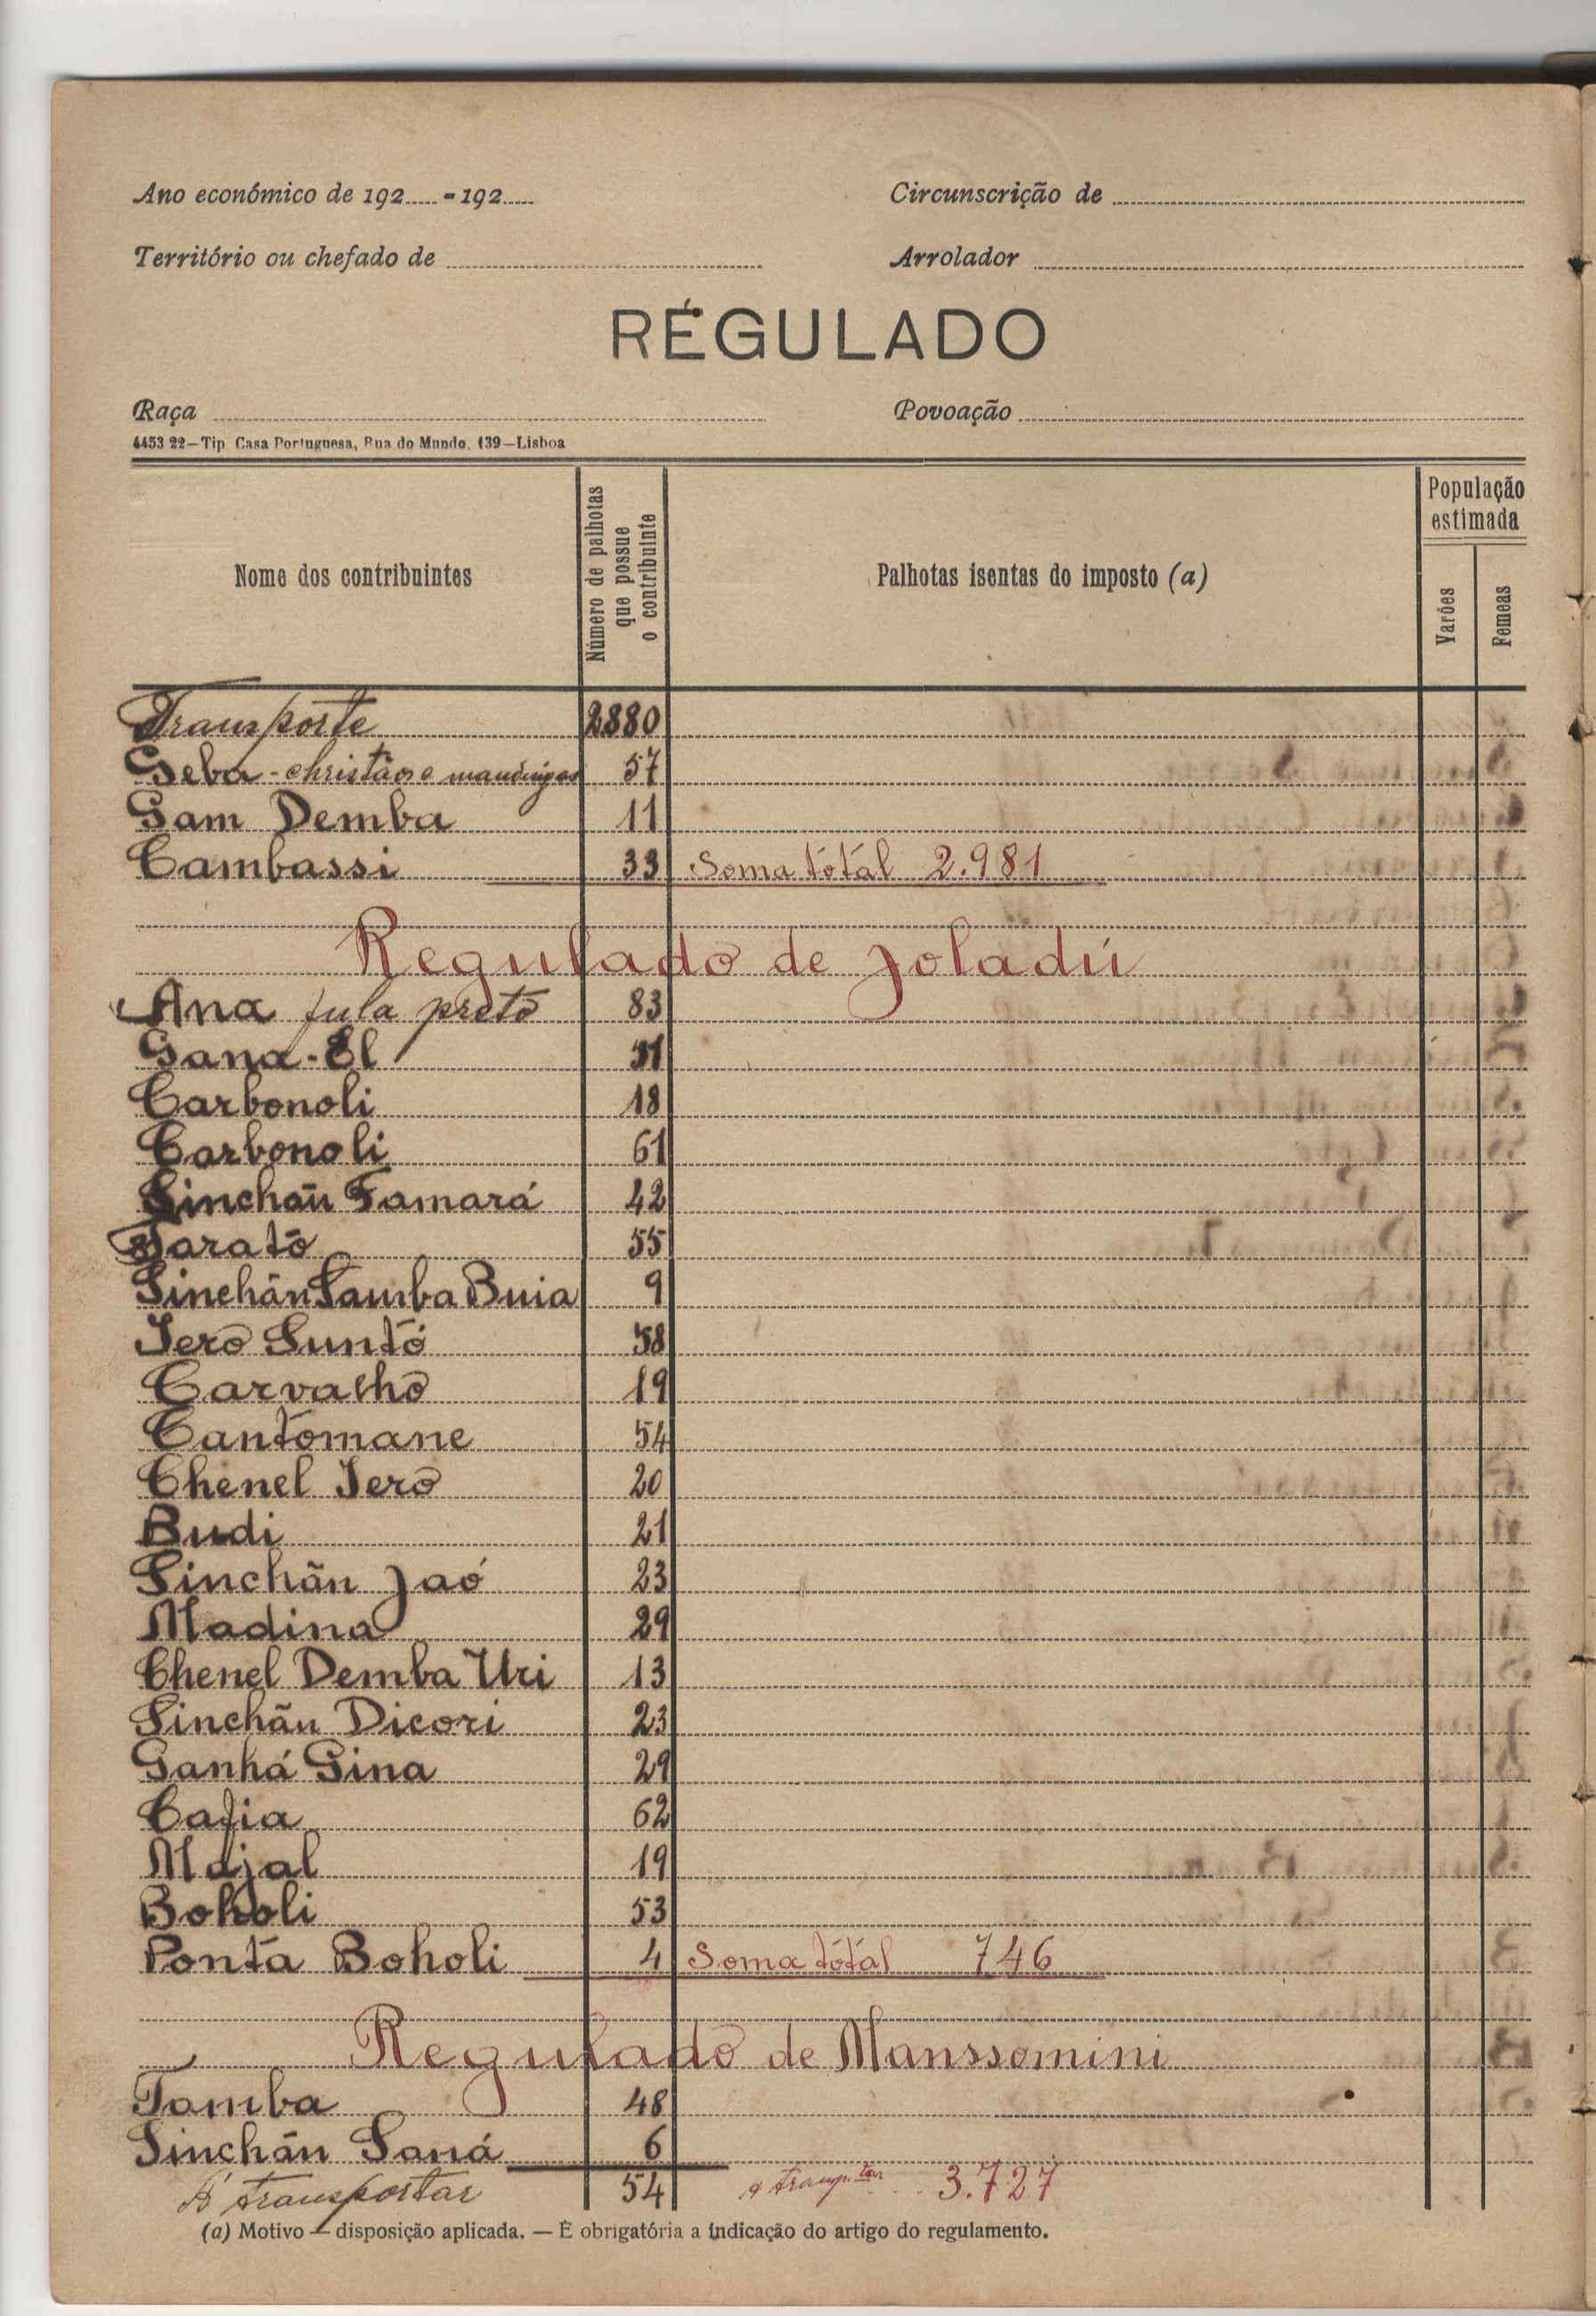 Ano económico de 192..... - 192.....
Circunscrição de
Território ou chefado de
Arrolador
RÉGULADO
Raça
Povoação
4453 22—Tip. Casa Portuguesa, Rua do Mundo, 139—Lisboa
Nome dos contribuintes
Número de palhotas que possue o contribuinte
Palhotas isentas do imposto (a)
População estimada
Varões
Femeas
Transporte 2880
Geba - christãos e mandingas 57
Gam Demba 11
Cambassi 33 Soma total 2.981
Regulado de Joladú
Ana fula preto 83
Gana-El 51
Carbonoli 18
Carbonoli 61
Sinchãu Tamará 42
Sarató 55
Sinchãn Samba Buia 9
Iero Suntó 58
Carvalho 19
Cantomane 54
Chenel Iero 20
Budi 21
Sinchãn Jaó 23
Madina 29
Chenel Demba Uri 13
Sinchãn Dicori 23
Ganhá Gina 29
Cafia 62
Majal 19
Boholi 53
Ponta Boholi 4 Soma total 746
Regulado de Manssomini
Tamba 48
Sinchãn Saná 6
A transportar 54 a transp.tar 3.727
(a) Motivo — disposição aplicada. — É obrigatória a indicação do artigo do regulamento.